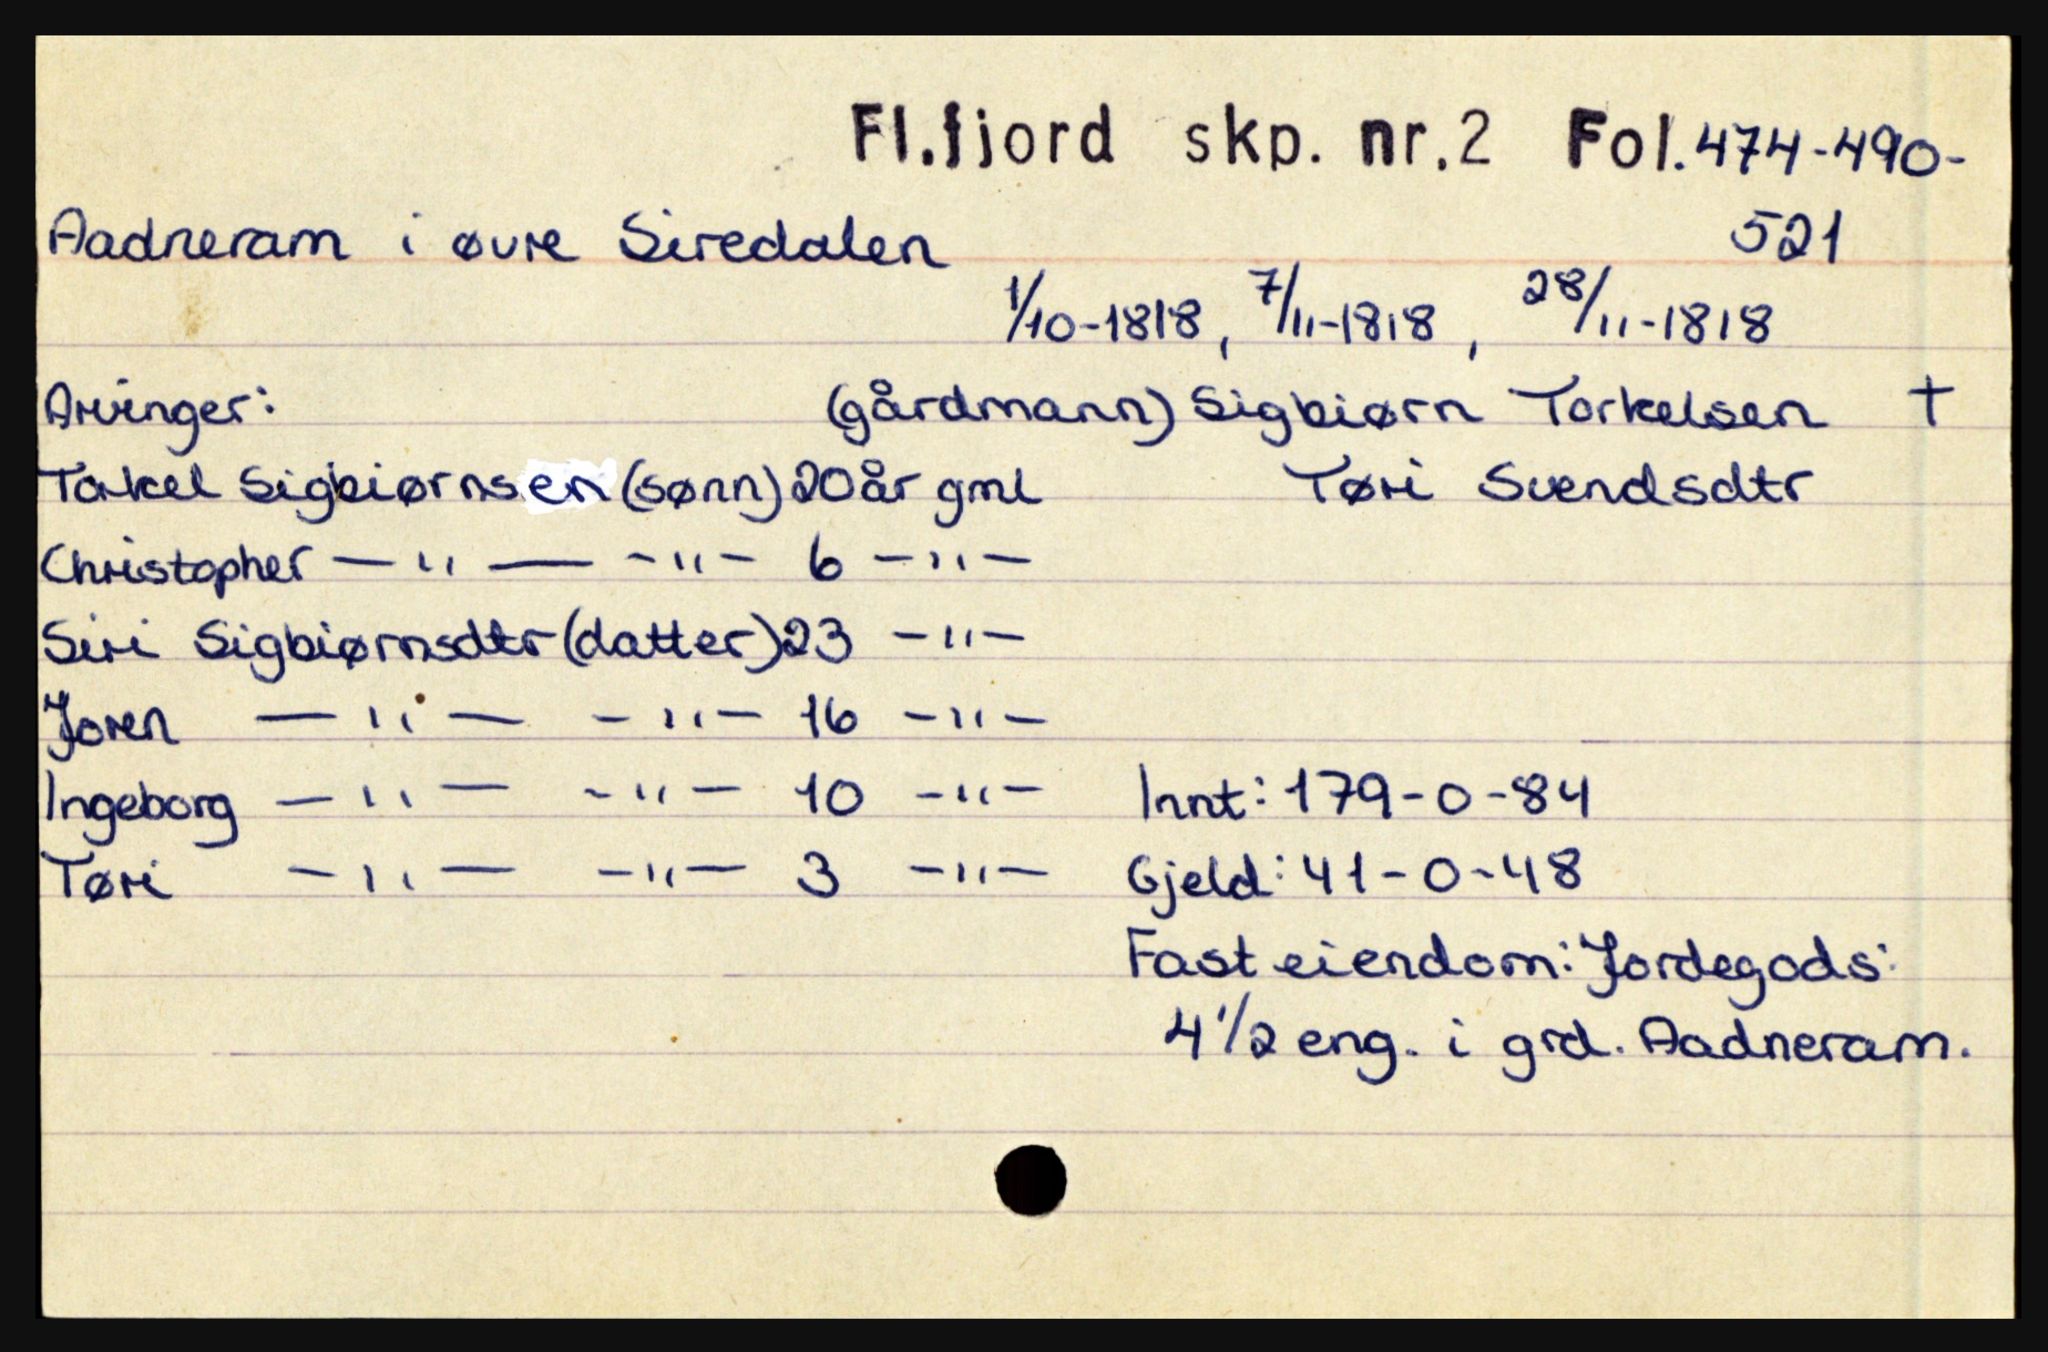 Fl.fjord skp. nr.2 Fol.474-490-
Aadneram i øvre Siredalen 521
1/10-1818, 7/11-1818, 28/11-1818
Arvinger: (gårdmann) Sigbiørn Torkelsen †
Torkel Sigbiørnsen (sønn) 20 år gml Tøri Svendsdtr
Christopher — " — - " - 6 - " -
Siri Sigbiørnsdtr (datter) 23 - " -
Joren — " — - " - 16 - " -
Ingeborg — " — - " - 10 - " - Innt: 179-0-84
Tøri — " — - " - 3 - " - Gjeld: 41-0-48
Fast eiendom: Jordegods:
4 1/2 eng. i grd. Aadneram.